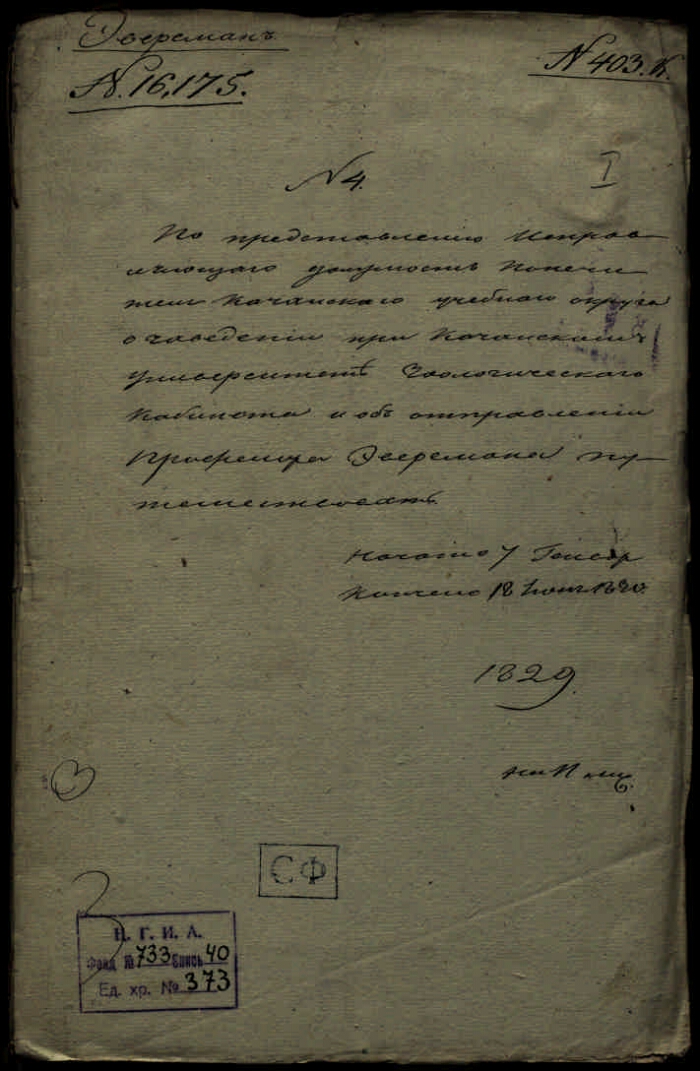 Эверсманъ
N. 16,175.
N 403. К.
N 4.
I
По представленію Исправ
ляющаго должность Попечи
теля Казанскаго учебнаго округа
о заведеніи при Казанскомъ
Университетѣ Зоологическаго
Кабинета и объ отправленіи
Профессора Эверсмана пу-
тешествовать.
Начато 7 Генвар
Кончено 18 Іюн 1830.
1829.
на
3
СФ
Ц. Г. И. А.
Фонд № 733 Опись 40
Ед. хр. № 373